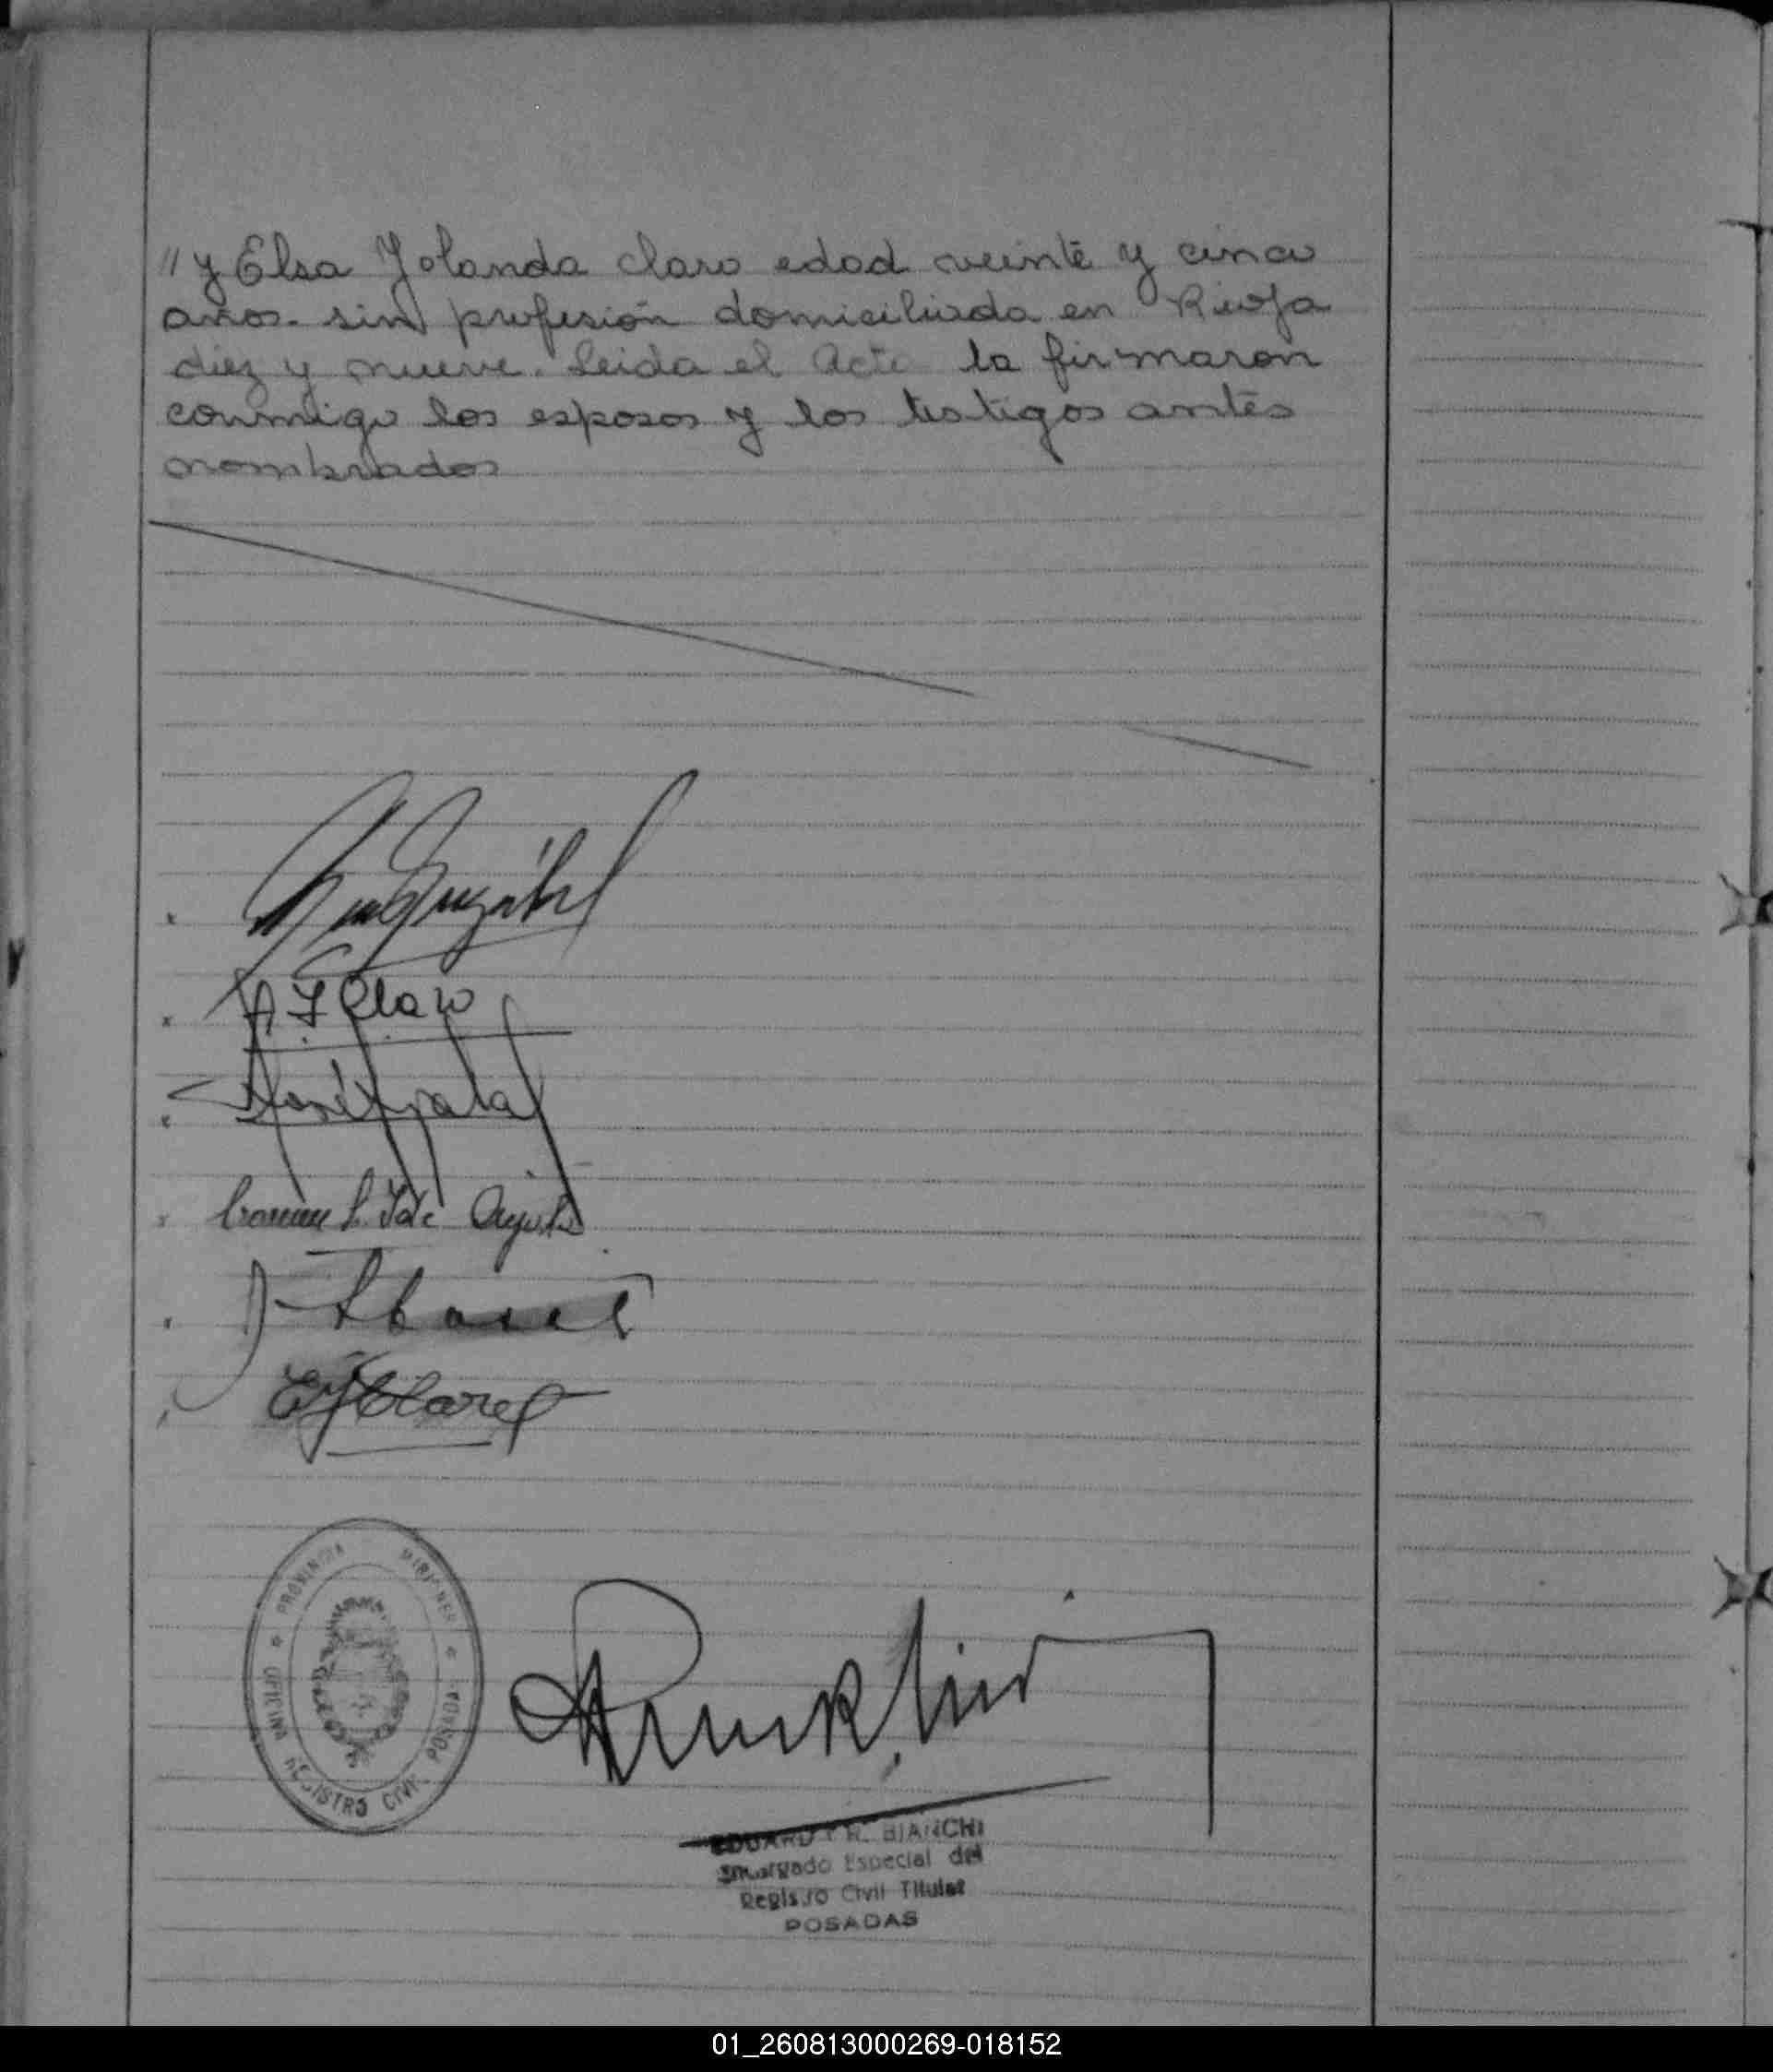 " y Elsa Yolanda Claro edad veinte y cinco
años. sin profesión domiciliada en Rioja
diez y nueve. Leida el Acta la firmaron
conmigo los esposos y los testigos antes
nombrados
A Y Claro
EYClaro
PROVINCIA MISIONES
OFICINA REGISTRO CIVIL POSADAS
EDUARDO R. BIANCHI
Encargado Especial del
Registro Civil Titular
POSADAS
01_260813000269-018152